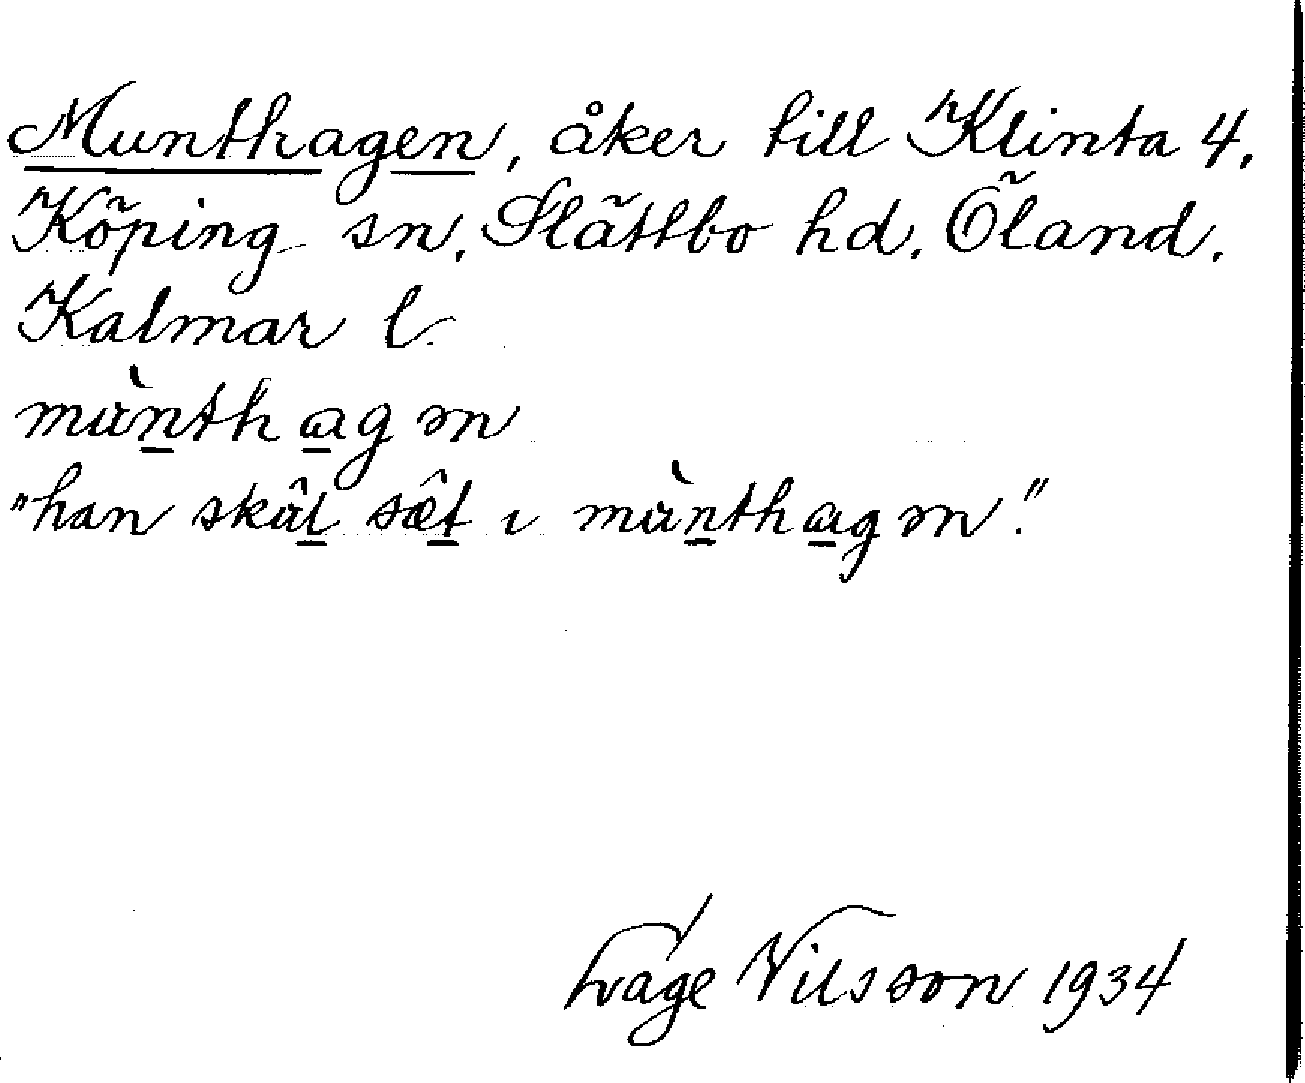 Munthagen, åker till Klinta 4.
Köping sn. Slättbo hd. Öland.
Kalmar l.
mùn̲tha̲gən
"han skâl̲ sæ̂t̲ ı mùn̲tha̲gən."
Tvåge Nilsson 1934